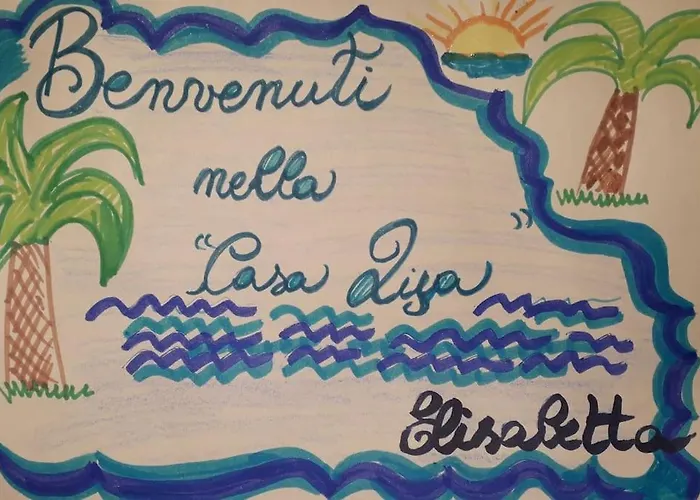 Benvenuti
nella
"Casa Liza"
Elisabetta